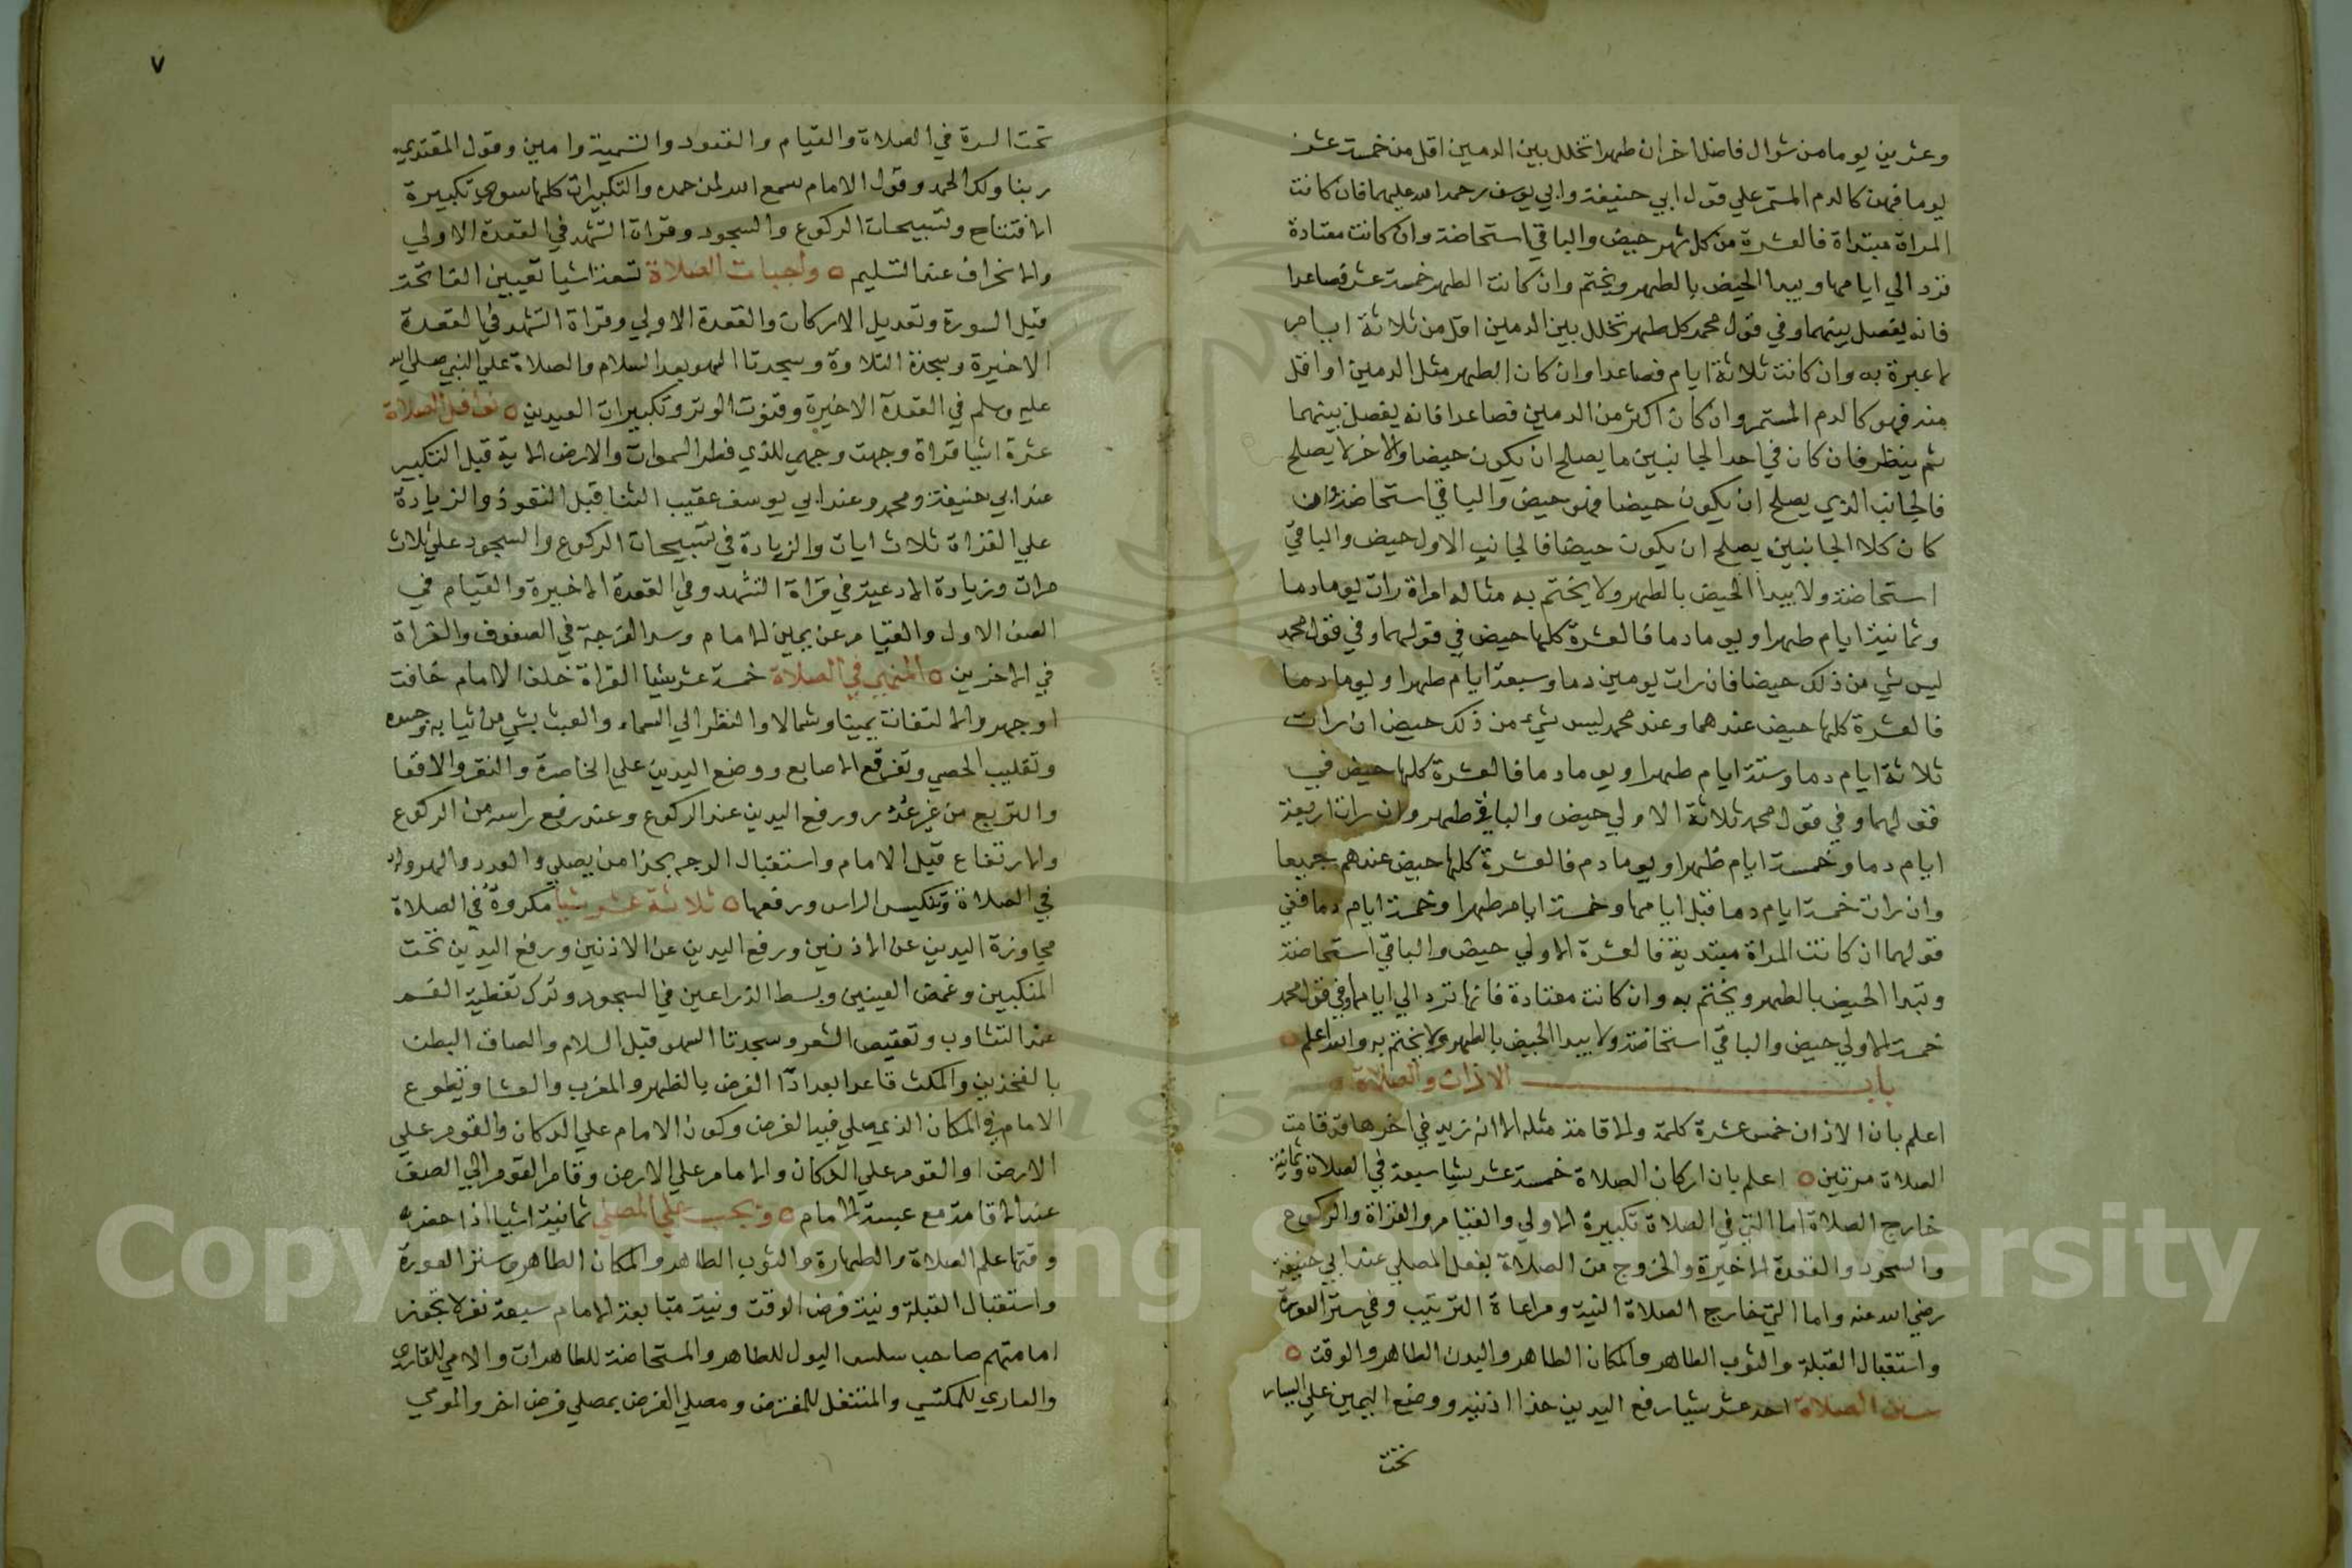 وعشرين يوما من شوال فاضل اخر ان طهرا تخلل بين الدمين اقل من خمسة عشر
يوما فهو كالدم المستمر علي قول ابي حنيفة وابي يوسف رحمة الله عليهما فان كانت
المراة مبتداة فالعشرة من كل شهر حيض والباقي استحاضة وان كانت معتادة
ترد الي ايامها ويبدا الحيض بالطهر ويختم وان كانت الطهر خمسة عشر فصاعدا
فانه يفصل بينهما وفي قول محمد كل طهر تخلل بين الدمين اقل من ثلاثة ايام
لا عبرة به وان كانت ثلاثة ايام فصاعدا وان كان الطهر مثل الدمين او اقل
منه فهو كالدم المستمر وان كان اكثر من الدمين فصاعدا فانه يفصل بينهما
ثم ينظر فان كان في احد الجانبين ما يصلح ان يكون حيضا والاخر لا يصلح
فالجانب الذي يصلح ان يكون حيضا فهو حيض والباقي استحاضة وان
كان كلا الجانبين يصلح ان يكون حيضا فالجانب الاول حيض والباقي
استحاضة ولا يبدا الحيض بالطهر ولا يختم به مثاله امراة رات يوما دما
وثمانية ايام طهرا ويوما دما فالعشرة كلها حيض في قولهما وفي قول محمد
ليس شي من ذلك حيضا فان رات يومين دما وسبعة ايام طهرا ويوما دما
فالعشرة كلها حيض عندهما وعند محمد ليس شيء من ذلك حيض ان رات
ثلاثة ايام دما وستة ايام طهرا ويوما دما فالعشرة كلها حيض في
قولهما وفي قول محمد ثلاثة الاولي حيض والباقي طهر وان رات اربعة
ايام دما وخمسة ايام طهرا ويوما دم فالعشرة كلها حيض عندهم جميعا
وان رات خمسة ايام دما قبل ايامها وخمسة ايام طهرا وخمسة ايام دما ففي
قولهما ان كانت المراة مبتدية فالعشرة الاولي حيض والباقي استحاضة
وتبدا الحيض بالطهر ويختم به وان كانت معتادة فانها ترد الي ايامها وفي قول محمد
خمسة الاولي حيض والباقي استحاضة ولا يبدا الحيض بالطهر ولا يختم به والله اعلم
باب الاذان والصلاة
اعلم بان الاذان خمس عشرة كلمة والاقامة مثله الا انه يزيد في اخرها قد قامت
الصلاة مرتين اعلم بان اركان الصلاة خمسة عشر شيا سبعة في الصلاة وثمانية
خارج الصلاة اما التي في الصلاة تكبيرة الاولي والقيام والقراة والركوع
والسجود والقعدة الاخيرة والخروج من الصلاة بفعل المصلي عند ابي حنيفة
رضي الله عنه واما التي خارج الصلاة النية ومراعاة الترتيب وفي ستر العورة
واستقبال القبلة والثوب الطاهر والمكان الطاهر والبدن الطاهر والوقت
سنن الصلاة احد عشر شيا رفع اليدين حذا اذنيه ووضع اليمين علي اليسار
تحت
٧
تحت السرة في الصلاة والقيام والقعود والتسمية وامين وقول المقتدي
ربنا ولك الحمد وقول الامام سمع الله لمن حمده والتكبيرات كلها سوي تكبيرة
الافتتاح وتسبيحات الركوع والسجود وقراة التشهد في القعدة الاولي
والانحراف عند التسليم واجبات الصلاة تسعة اشيا تعيين الفاتحة
قبل السورة وتعديل الاركان والقعدة الاولي وقراة التشهد في القعدة
الاخيرة وسجدة التلاوة وسجدتا السهو بعد السلام والصلاة علي النبي صلي الله
عليه وسلم في القعدة الاخيرة وقنوت الوتر وتكبيرات العيدين نوافل الصلاة
عشرة اشيا قراة وجهت وجهي للذي فطر السموات والارض الاية قبل التكبير
عند ابي حنيفة ومحمد وعند ابي يوسف عقيب الثنا قبل التعوذ والزيادة
علي القراة ثلاث ايات والزيادة في تسبيحات الركوع والسجود علي ثلاث
مرات وزيادة الادعية في قراة التشهد وفي القعدة الاخيرة والقيام في
الصف الاول والقيام عن يمين الامام وسد الفرجة في الصفوف والقراة
في الاخريين المنهي في الصلاة خمسة عشر شيا القراة خلف الامام خافت
او جهر والالتفات يمينا وشمالا والنظر الي السماء والعبث بشي من ثيابه وجسده
وتقليب الحصي وتفرقع الاصابع ووضع اليدين علي الخاصرة والنقر والاقعا
والتربع من غير عذر ورفع اليدين عند الركوع وعند رفع راسه من الركوع
والارتفاع قبل الامام واستقبال الوجه بحذا من يصلي والعدد والهرولة
في الصلاة وتنكيس الراس ورفعها ثلاثة عشر شيا مكروة في الصلاة
مجاوزة اليدين عن الاذنين ورفع اليدين عن الاذنين ورفع اليدين تحت
المنكبين وغمض العينين وبسط الذراعين في السجود وترك تغطية الفم
عند التثاوب وتعقيص الشعر وسجدتا السهو قبل السلام والصاق البطن
بالفخذين والمكث قاعدا بعد ادا الفرض يا لظهر والمغرب والعشا وتطوع
الامام في المكان الذي صلي فيه الفرض وكون الامام علي الدكان والقوم علي
الارض او القوم علي الدكان والامام علي الارض وقام القوم الي الصف
عند الاقامة مع غيبة الامام ويجب علي المصلي ثمانية اشيا اذا حضر
وقتها علم الصلاة والطهارة والثوب الطاهر والمكان الطاهر وستر العورة
واستقبال القبلة ونية فرض الوقت ونية متابعة الامام سبعة نفر لا تجوز
امامتهم صاحب سلس البول للطاهر والمستحاضة للطاهرات والامي للقاري
والعاري للمكتسي والمتنفل للمفترض ومصلي الفرض بمصلي فرض اخر والمومي
Copyright © King Saud University
1957